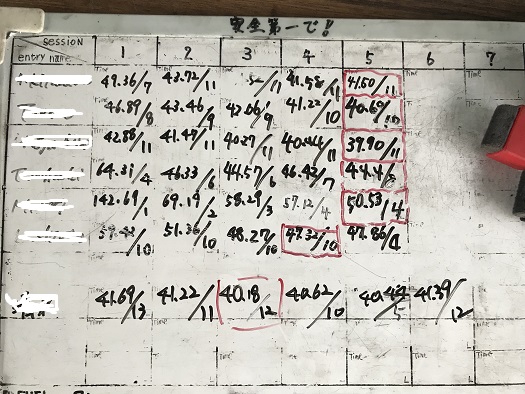 安全第一で!!
SESSION 1 2 3 4 5 6 7
entry name Time Time Time Time Time Time Time
49.36/7 43.72/11 /11 41.58/11 41.50/11
46.89/8 43.46/9 42.06/9 41.22/10 40.69/
42.88/11 41.49/11 40.27/11 40.44/11 39.90/11
64.31/4 46.33/6 44.57/6 46.42/7 44.4/
142.69/1 69.19/2 58.29/3 57.12/4 50.53/4
59.42/10 51.36/10 48.27/10 47.32/10 47.86/
41.69/13 41.22/11 40.18/12 40.62/10 40.44/5 41.39/12
Time Time Time Time Time Time Time